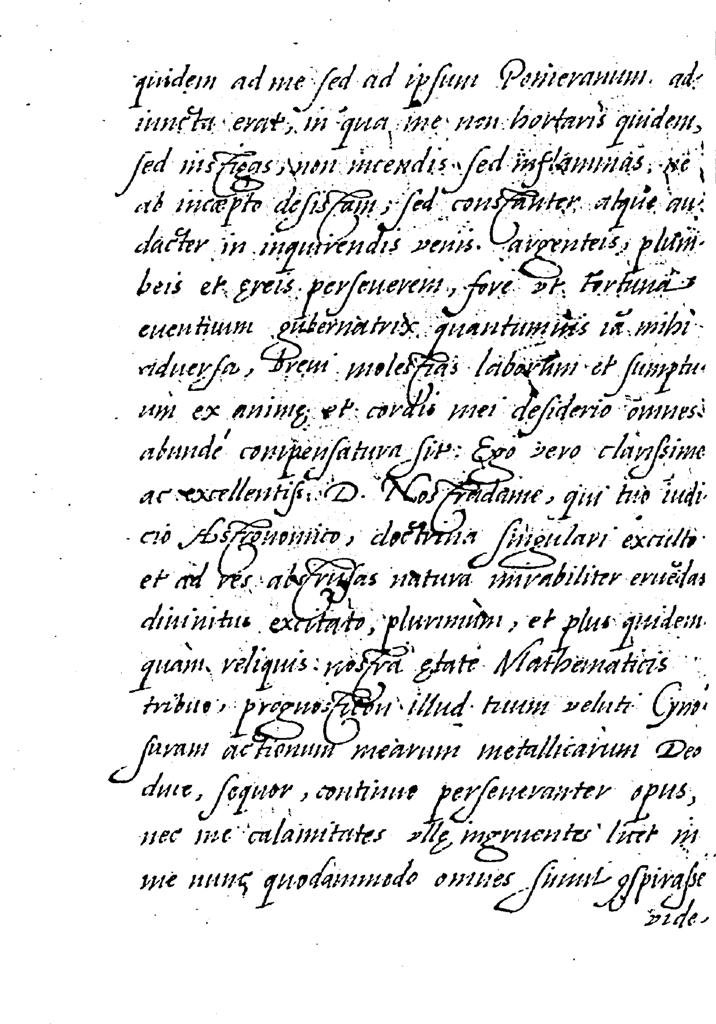 quidem ad me sed ad ipsum Pomeranum. ad-
iuncta erat, in qua me non hortaris quidem,
sed instigas, non incendis sed inflammas, ne
ab incæpto desistam, sed constanter atque au-
dacter in inquirendis venis argenteis, plum-
beis et ęreis perseverem, fore vt fortuna
eventuum gubernatrix quantumuis iā mihi
adversa, brevi molestias laborum et sumptu-
um ex animę et cordis mei desiderio omnes
abundé compensatura sit. Ego vero clarissime
ac excellentiss. D. Nostradame, qui tuo iudi-
cio Astronomico, doctrina singulari exculto
et ad res abstrusas natura mirabiliter eruēdas
divinitus excitato, plurimùm, et plus quidem
quàm reliquis nostra ętate Mathematicis
tribuo, prognosticon illud tuum veluti Cyno-
suram actionum mearum metallicarum Deo
duce, sequor, continuo perseveranter opus,
nec me calamitates vllę ingruentes licet in
me nunc quodammodo omnes simul ꝯspirasse
vide-